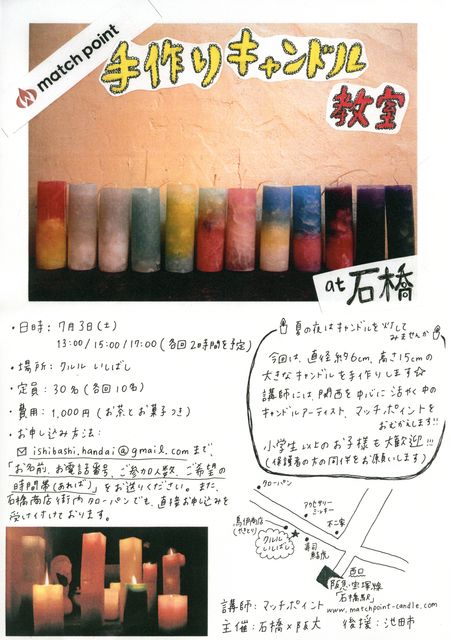 match point
手作りキャンドル
教室
at 石橋
・日時：7月3日(土)
13:00/15:00/17:00（各回2時間を予定）
・場所：クルル いしばし
・定員：30名（各回10名）
・費用：1,000円（お茶とお菓子つき）
・お申し込み方法：
✉ ishibashi.handai@gmail.com まで、
「お名前、お電話番号、ご参加人数、ご希望の
時間帯(あれば)」をお送りください。また、
石橋商店街内 タローパンでも、直接お申し込みを
受け付けております。
夏の夜はキャンドルを灯して
みませんか
今回は、直径約6cm、高さ15cmの
大きなキャンドルを手作りします☆
講師には関西を中心に活やく中の
キャンドルアーティスト、マッチポイントを
おむかえします!!
小学生以上のお子様も大歓迎!!!
（保護者の方の同伴をお願いします）
タローパン
アクセサリー
ミンキー
不二家
鳥伊商店
（やきとり）
クルル
いしばし
寿司
西口
阪急宝塚線
「石橋駅」
www.matchpoint-candle.com
講師：マッチポイント
主催：石橋×阪大
後援：池田市